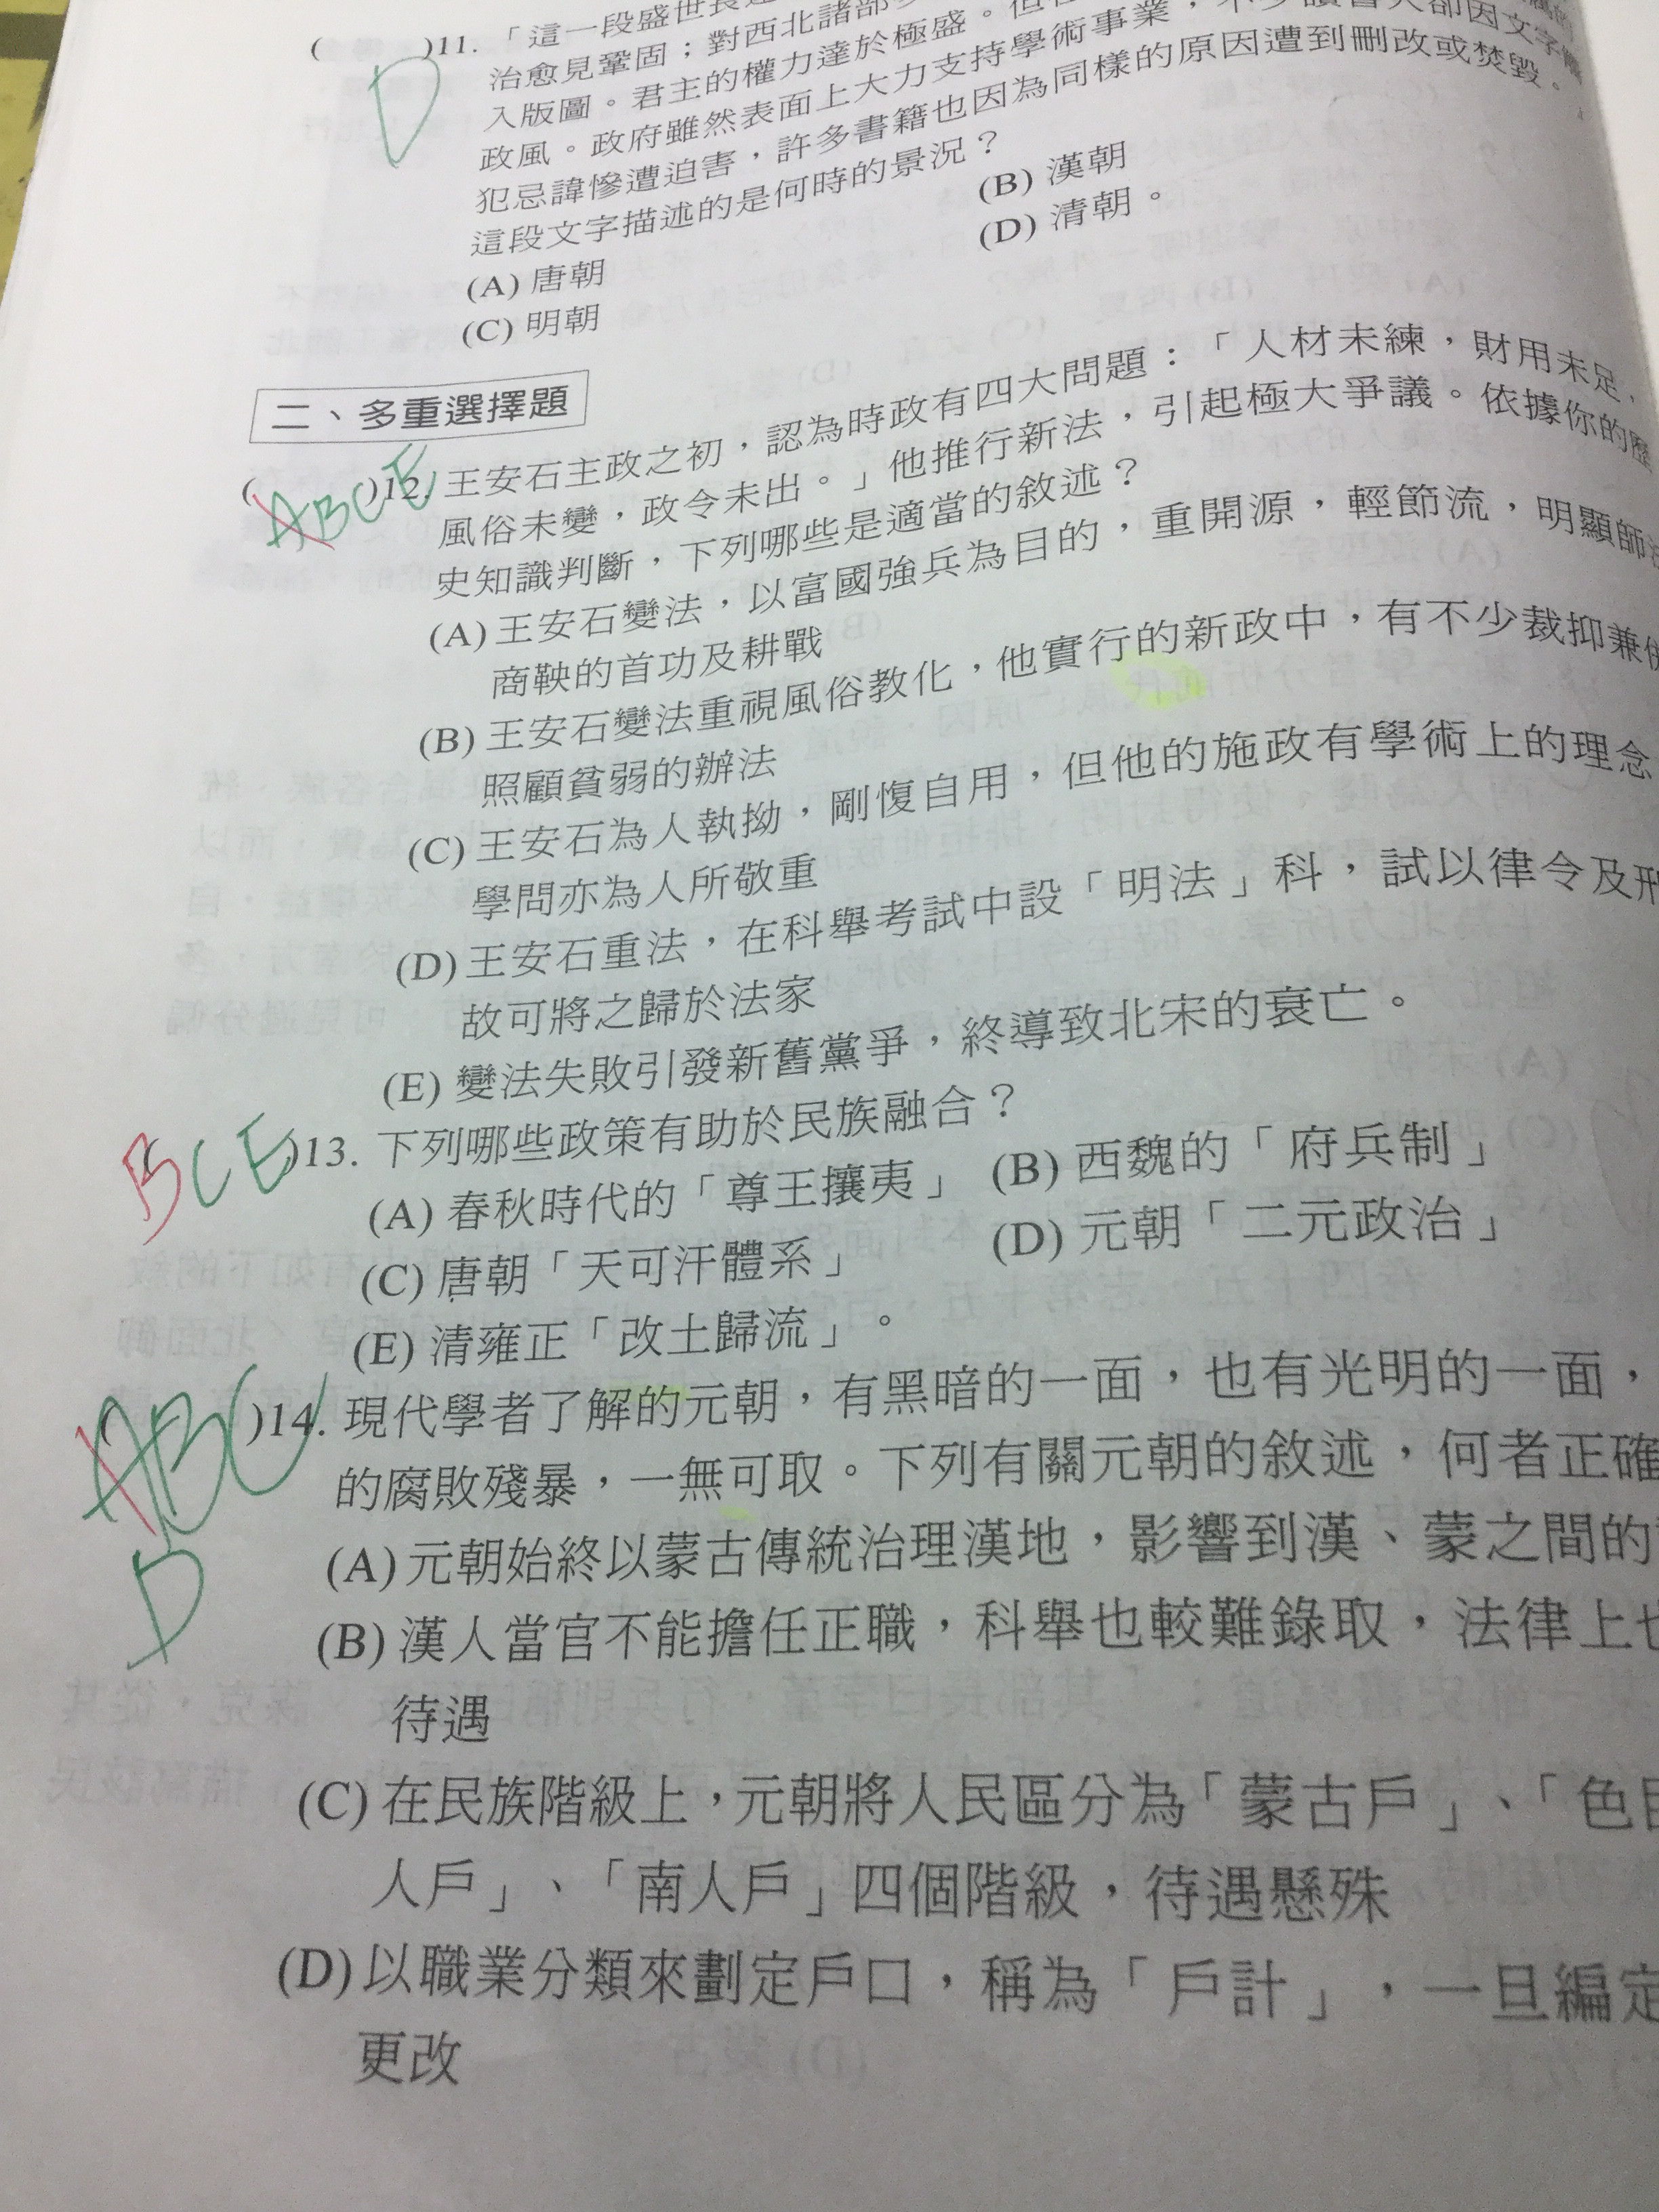 ( )11. 「這一段盛世長達
治愈見鞏固；對西北諸部
入版圖。君主的權力達於極盛。但
政風。政府雖然表面上大力支持學術事業，不少讀書人卻因文字
犯忌諱慘遭迫害，許多書籍也因為同樣的原因遭到刪改或焚毀。
這段文字描述的是何時的景況？
(A) 唐朝 (B) 漢朝
(C) 明朝 (D) 清朝。
D
二、多重選擇題
ABCE
( )12. 王安石主政之初，認為時政有四大問題：「人材未練，財用未足，
風俗未變，政令未出。」他推行新法，引起極大爭議。依據你的歷
史知識判斷，下列哪些是適當的敘述？
(A) 王安石變法，以富國強兵為目的，重開源，輕節流，明顯師法
商鞅的首功及耕戰
(B) 王安石變法重視風俗教化，他實行的新政中，有不少裁抑兼併
照顧貧弱的辦法
(C) 王安石為人執拗，剛愎自用，但他的施政有學術上的理念
學問亦為人所敬重
(D) 王安石重法，在科舉考試中設「明法」科，試以律令及刑
故可將之歸於法家
(E) 變法失敗引發新舊黨爭，終導致北宋的衰亡。
BCE
( )13. 下列哪些政策有助於民族融合？
(A) 春秋時代的「尊王攘夷」 (B) 西魏的「府兵制」
(C) 唐朝「天可汗體系」 (D) 元朝「二元政治」
(E) 清雍正「改土歸流」。
ABC
D
( )14. 現代學者了解的元朝，有黑暗的一面，也有光明的一面，
的腐敗殘暴，一無可取。下列有關元朝的敘述，何者正確
(A) 元朝始終以蒙古傳統治理漢地，影響到漢、蒙之間的
(B) 漢人當官不能擔任正職，科舉也較難錄取，法律上也
待遇
(C) 在民族階級上，元朝將人民區分為「蒙古戶」、「色目
人戶」、「南人戶」四個階級，待遇懸殊
(D) 以職業分類來劃定戶口，稱為「戶計」，一旦編定
更改